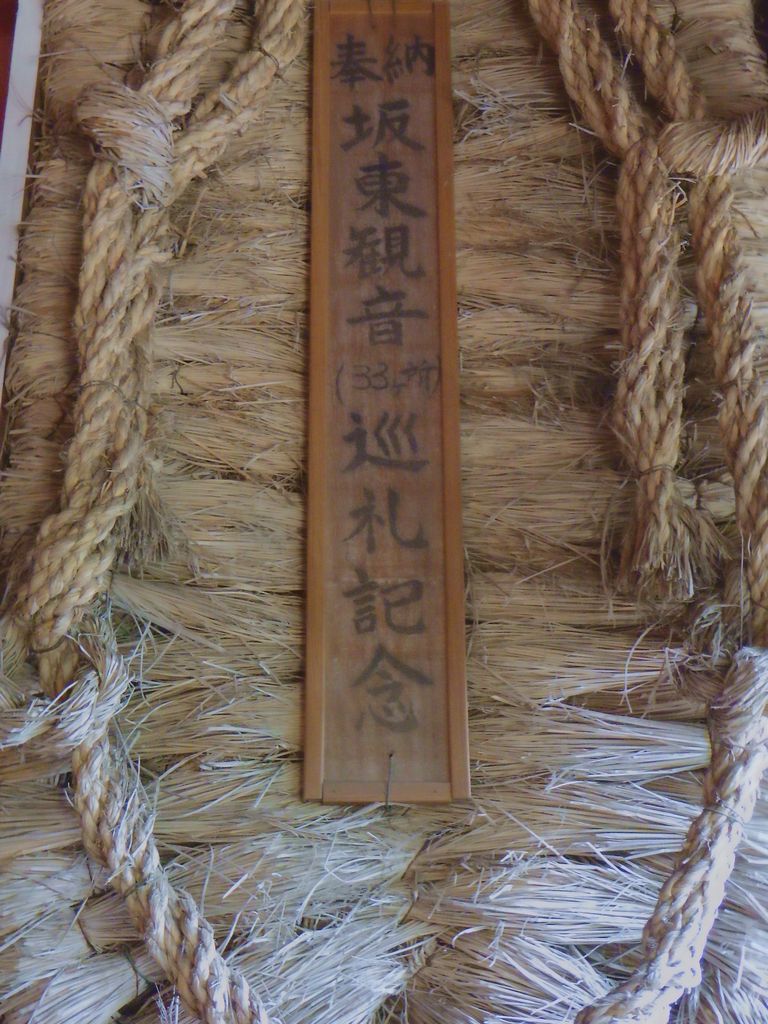 奉納
坂東観音
(33ヶ所)
巡礼記念